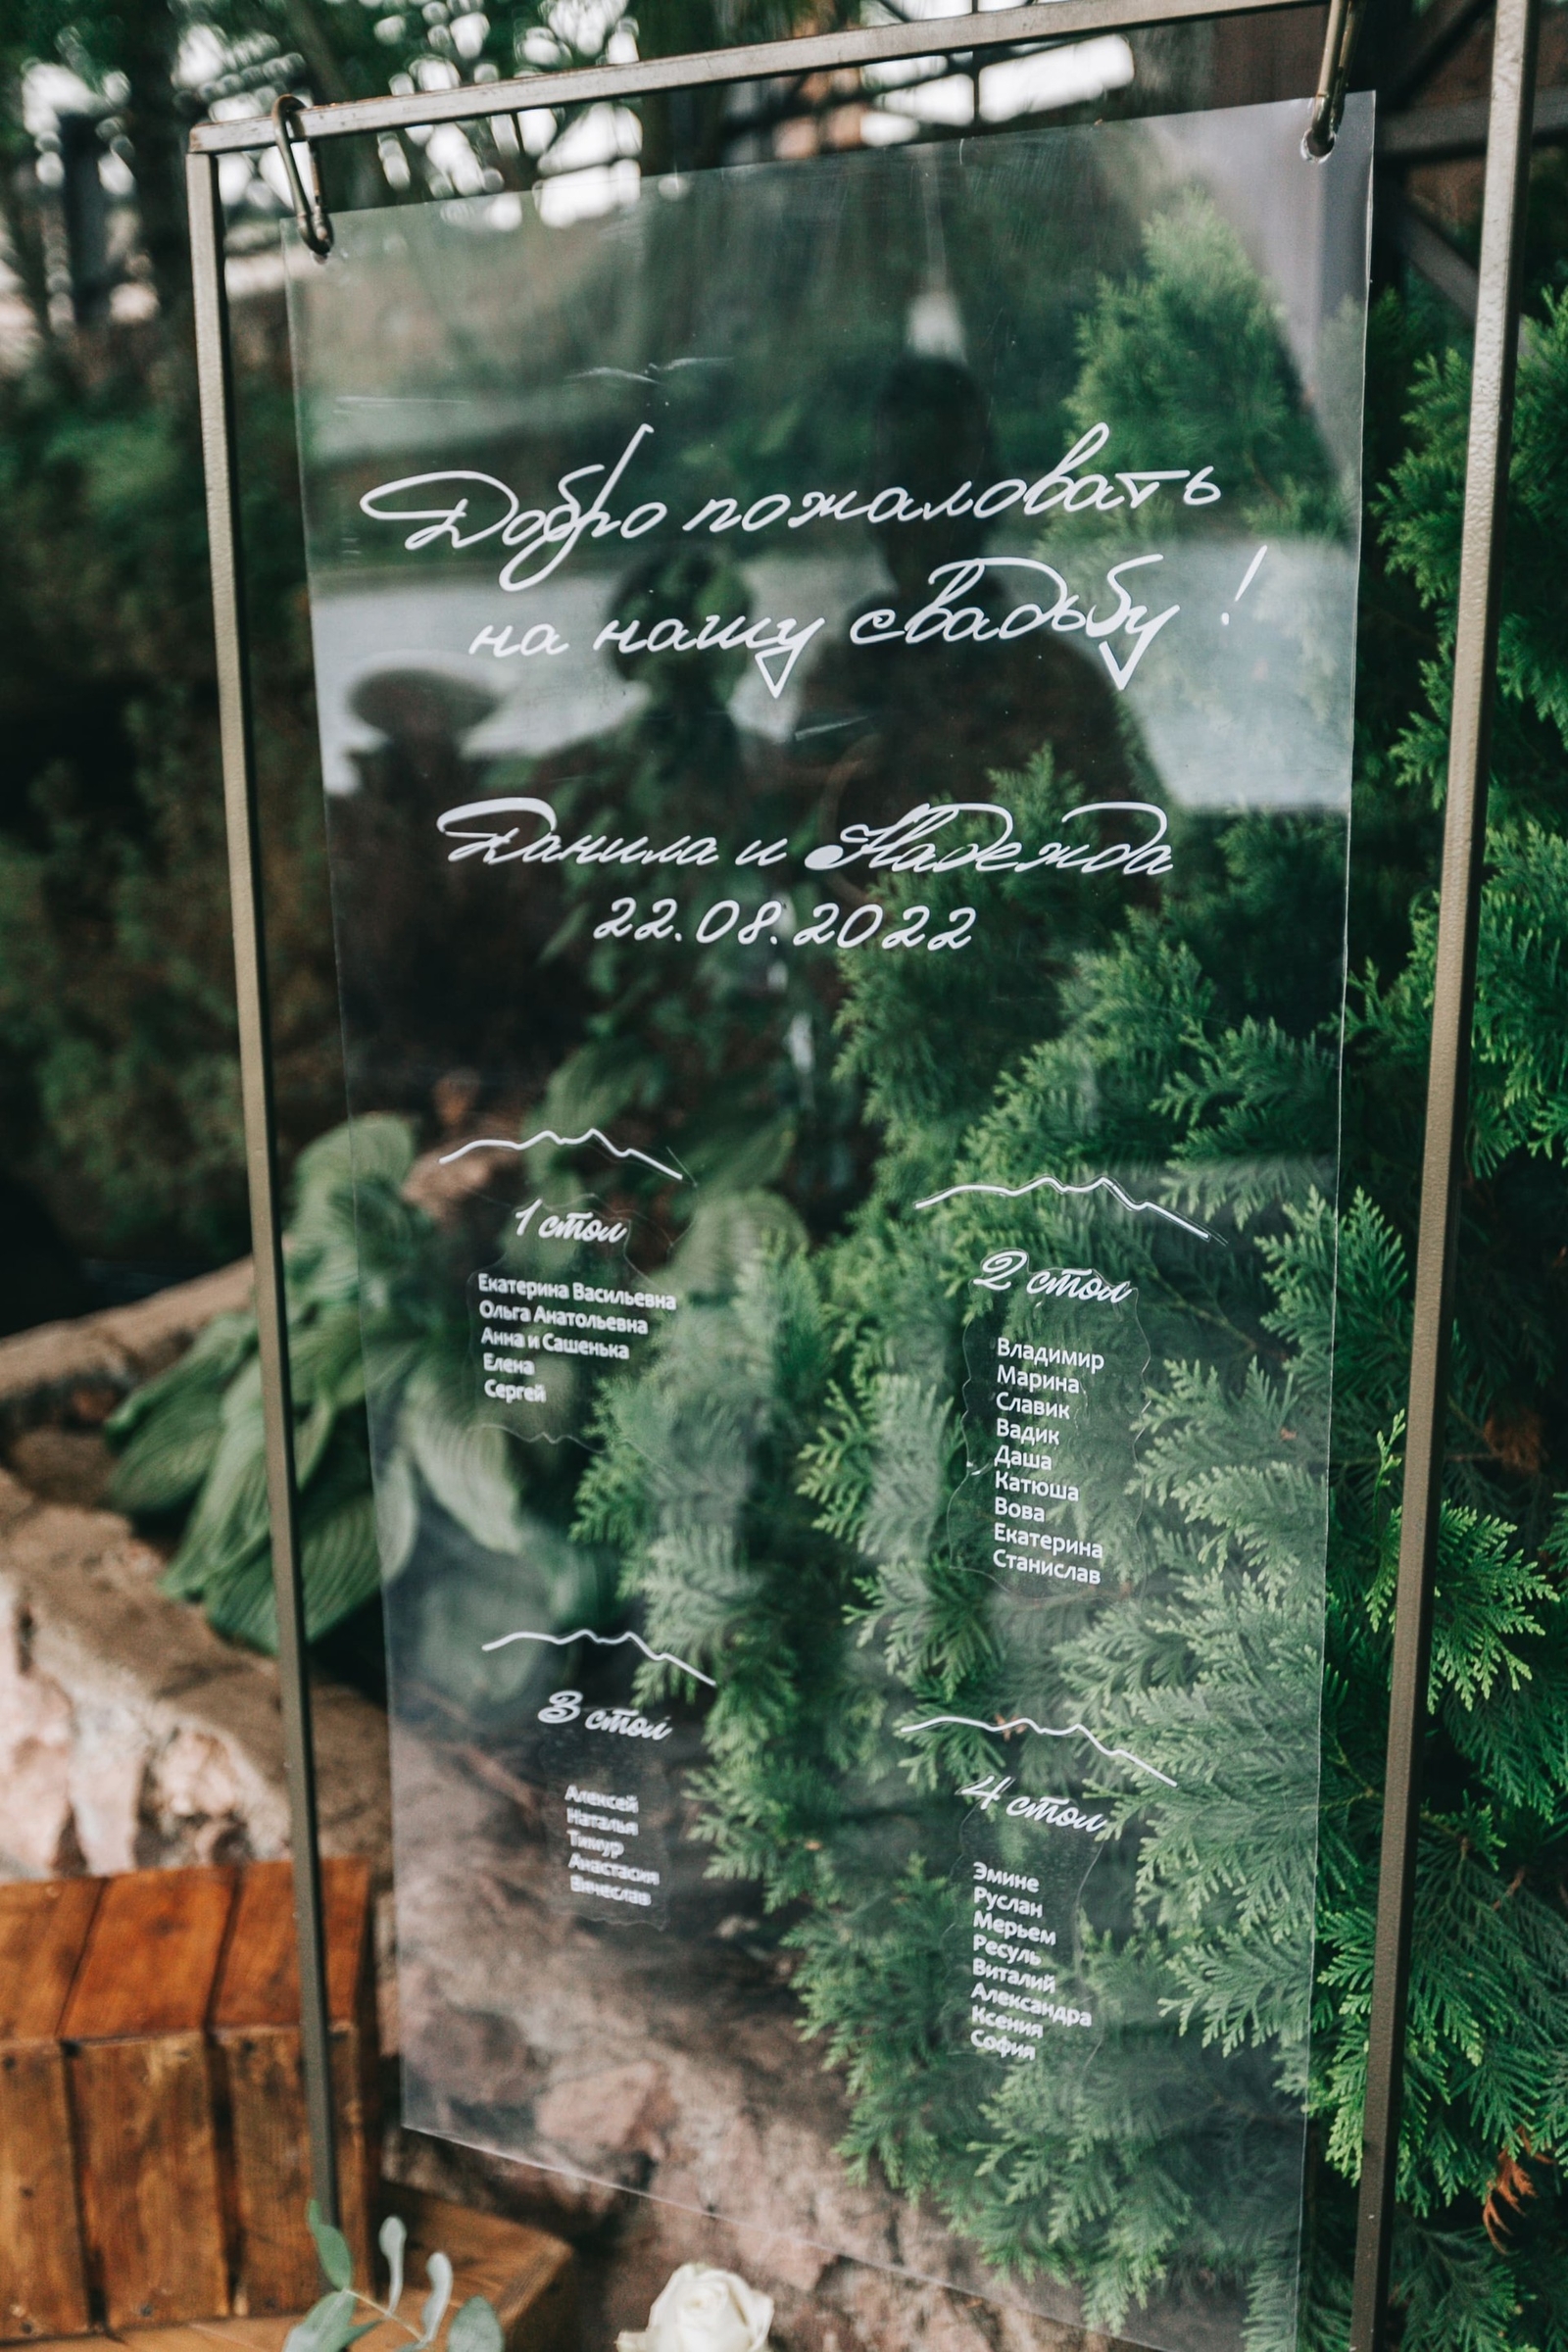 Добро пожаловать
на нашу свадьбу !
Данила и Надежда
22.08.2022
1 стол
Екатерина Васильевна
Ольга Анатольевна
Анна и Сашенька
Елена
Сергей
2 стол
Владимир
Марина
Славик
Вадик
Даша
Катюша
Вова
Екатерина
Станислав
3 стол
Алексей
Наталья
Тимур
Анастасия
Вячеслав
4 стол
Эмине
Руслан
Мерьем
Ресуль
Виталий
Александра
Ксения
София